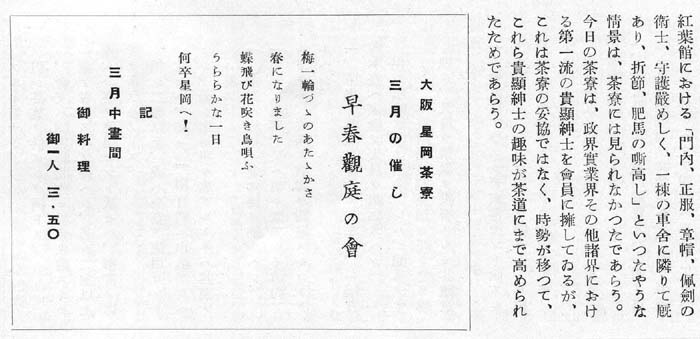 紅葉館における「門內、正服、章帽、佩劍の
衞士、守護嚴めしく、一棟の車舍に隣りて厩
あり、折節、肥馬の嘶高し」といつたやうな
情景は、茶寮には見られなかつたであらう。
今日の茶寮は、政界實業界その他諸界におけ
る第一流の貴顯紳士を會員に擁してゐるが、
これは茶寮の妥協ではなく、時勢が移つて、
これら貴顯紳士の趣味が茶道にまで高められ
たためであらう。
大阪 星岡茶寮
三月の催し
早春觀庭の會
梅一輪づゝのあたゝかさ
春になりました
蝶飛び花咲き鳥唄ふ
うららかな一日
何卒星岡へ!
記
三月中晝間
御料理
御一人 三・五〇